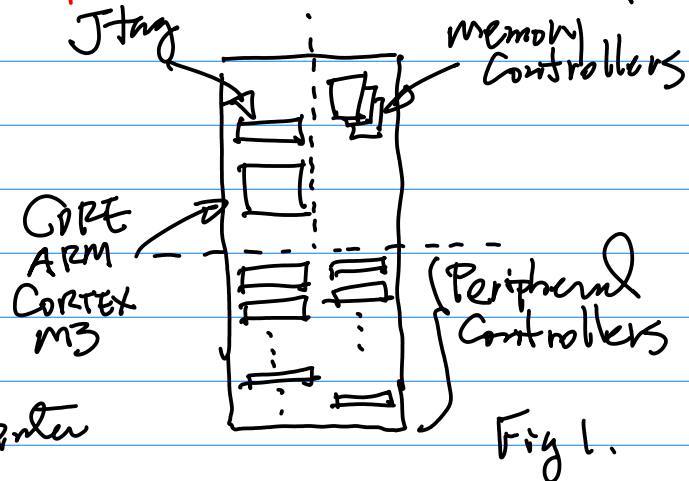 Jtag
Memory
Controllers
CORE
ARM
CORTEX
M3
Peripheral
Controllers
Fig 1.